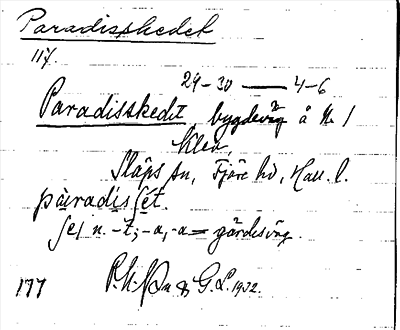 Paradisskedet
117.
29-30 — 4-6
Paradisskedet, bygdeväg å № 1
Klev,
Släps sn, Fjäre hd, Hall. l.
pàradisʃèt.
ʃe/ n. -t; -a, -a = gärdesväg.
177 P. N-son & G. L. 1932.